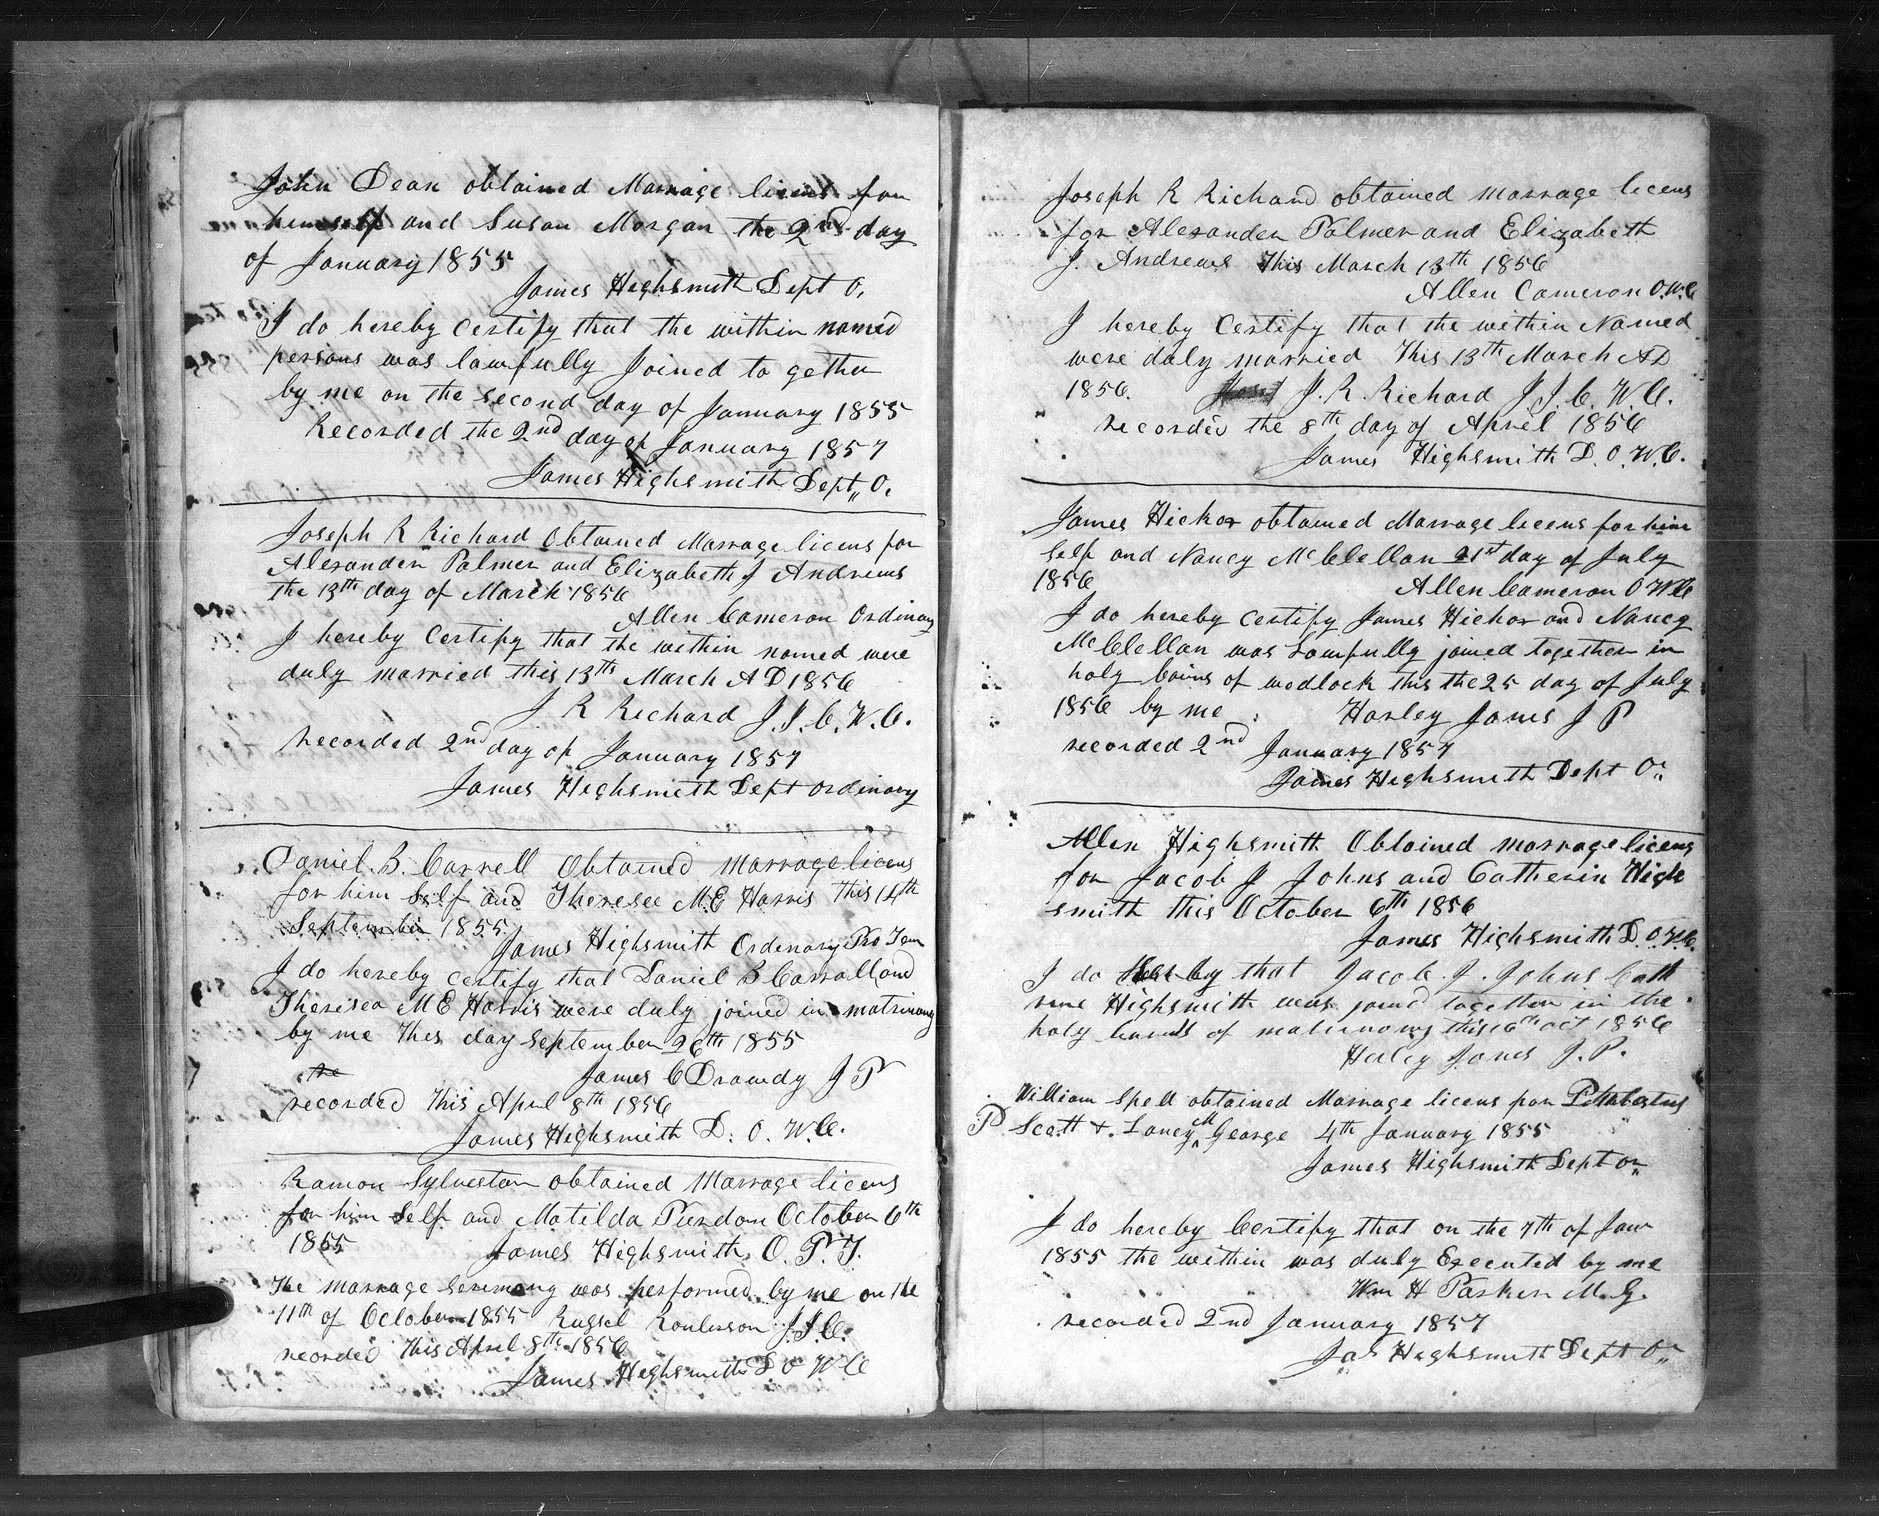 John Dean obtained Marrage licens for
himself and Susan Morgan the 2nd day
of January 1855
James Highsmith Dept O,
I do hereby certify that the within named
persons was lawfully Joined to gether
by me on the second day of January 1855
Recorded the 2nd day of January 1857
James Highsmith Dept,, O,
Joseph R Richard Obtained Marrage licens for
Alexander Palmer and Elizabeth J Andrews
the 13th day of March 1856
Allen Cameron Ordinary
I hereby Certify that the within named were
duly married this 13th March A D 1856
J R Richard J. I. C. W. C.
recorded 2nd day of January 1857
James Highsmith Dept Ordinary
Daniel. B. Carrell Obtained Marrage licens
for him Self and Theresee M E Harris This 14th
September 1855
James Highsmith Ordenary Pro Tem
I do hereby certify that Daniel B Carrall and
Theresea M E Harris were duly joined in matrimony
by me This day September 26th 1855
the
James C Drawdy J P
recorded This April 8th 1856
James Highsmith D. O. W. C.
Ramon Sylvester obtained Marrage licens
for him Self and Matilda Purdom October 6th
1855
James Highsmith, O. P. T.
The marrage Seremony was performed by me on the
11th of October 1855 Russel J. I. C.
recorded This April 8th 1856
James Highsmith D O W C
Joseph R Richard obtained marrage licens
for Alexander Palmer and Elizabeth
J. Andrews This March 13th 1856
Allen Cameron O. W. C
I hereby Certify that the within Named
were duly married This 13th March AD
1856. J. R. Richard J. I. C. W. C.
recorded the 8th day of April 1856
James Highsmith D. O. W. C.
James Hickox obtained Marrage licens for him
Self and Nancy McClellan 21st day of July
1856
Allen Cameron O W C
I do hereby certify James Hickox and Nancy
McClellan was Lawfully joined together in
holy bains of wedlock this the 25 day of July
1856 by me Harley Jones J P
recorded 2nd January 1857
James Highsmith Dept O,,
Allen Highsmith Obtained marrage licens
for Jacob J Johns and Catherin High
smith this October 6th 1856
James Highsmith D. O. W. C.
I do by that Jacob. J. Johns Cath
rine Highsmith was joind together in the
holy bands of matrimony this 16th oct 1856
Harley Jones J. P.
William Spell obtained Marrage licens for
P Scott & Laney M George 4th January 1855
James Highsmith Dept O,,
I do hereby Certify that on the 7th of Jan
1855 the within was duly Executed by me
Wm H Parker M. G.
recorded 2nd January 1857
Jas Highsmith Dept O,,